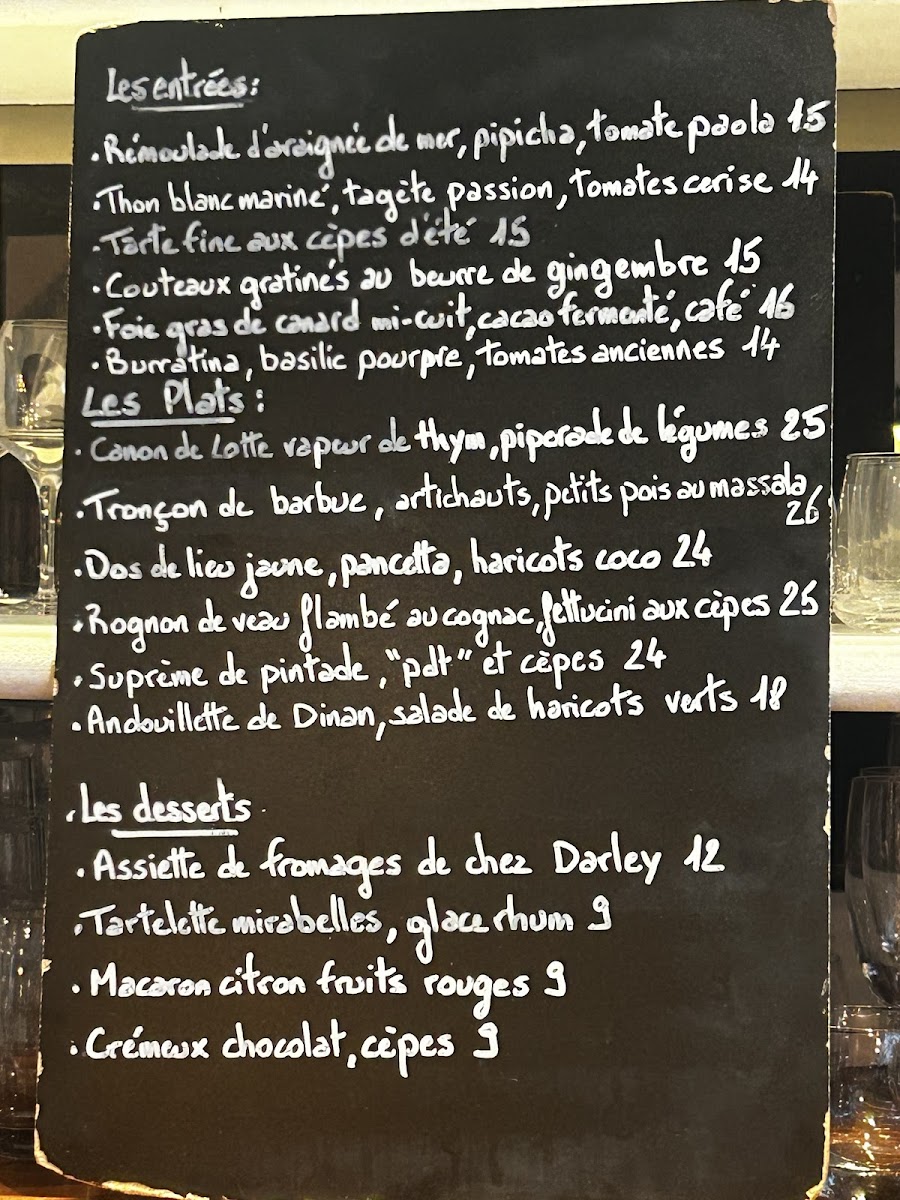 Les entrées:
. Rémoulade d'araignée de mer, pipicha, tomate paola 15
. Thon blanc mariné, tagète passion, tomates cerise 14
. Tarte fine aux cèpes d'été 15
. Couteaux gratinés au beurre de gingembre 15
. Foie gras de canard mi-cuit, cacao fermenté, café 16
. Burratina, basilic pourpre, tomates anciennes 14
Les Plats:
. Canon de Lotte vapeur de thym, piperade de légumes 25
. Tronçon de barbue, artichauts, petits pois au massala
26
. Dos de lieu jaune, pancetta, haricots coco 24
. Rognon de veau flambé au cognac, fettucini aux cèpes 25
. Suprème de pintade, "pdt" et cèpes 24
. Andouillette de Dinan, salade de haricots verts 18
. Les desserts
. Assiette de fromages de chez Darley 12
. Tartelette mirabelles, glace rhum 9
. Macaron citron fruits rouges 9
. Crémeux chocolat, cèpes 9